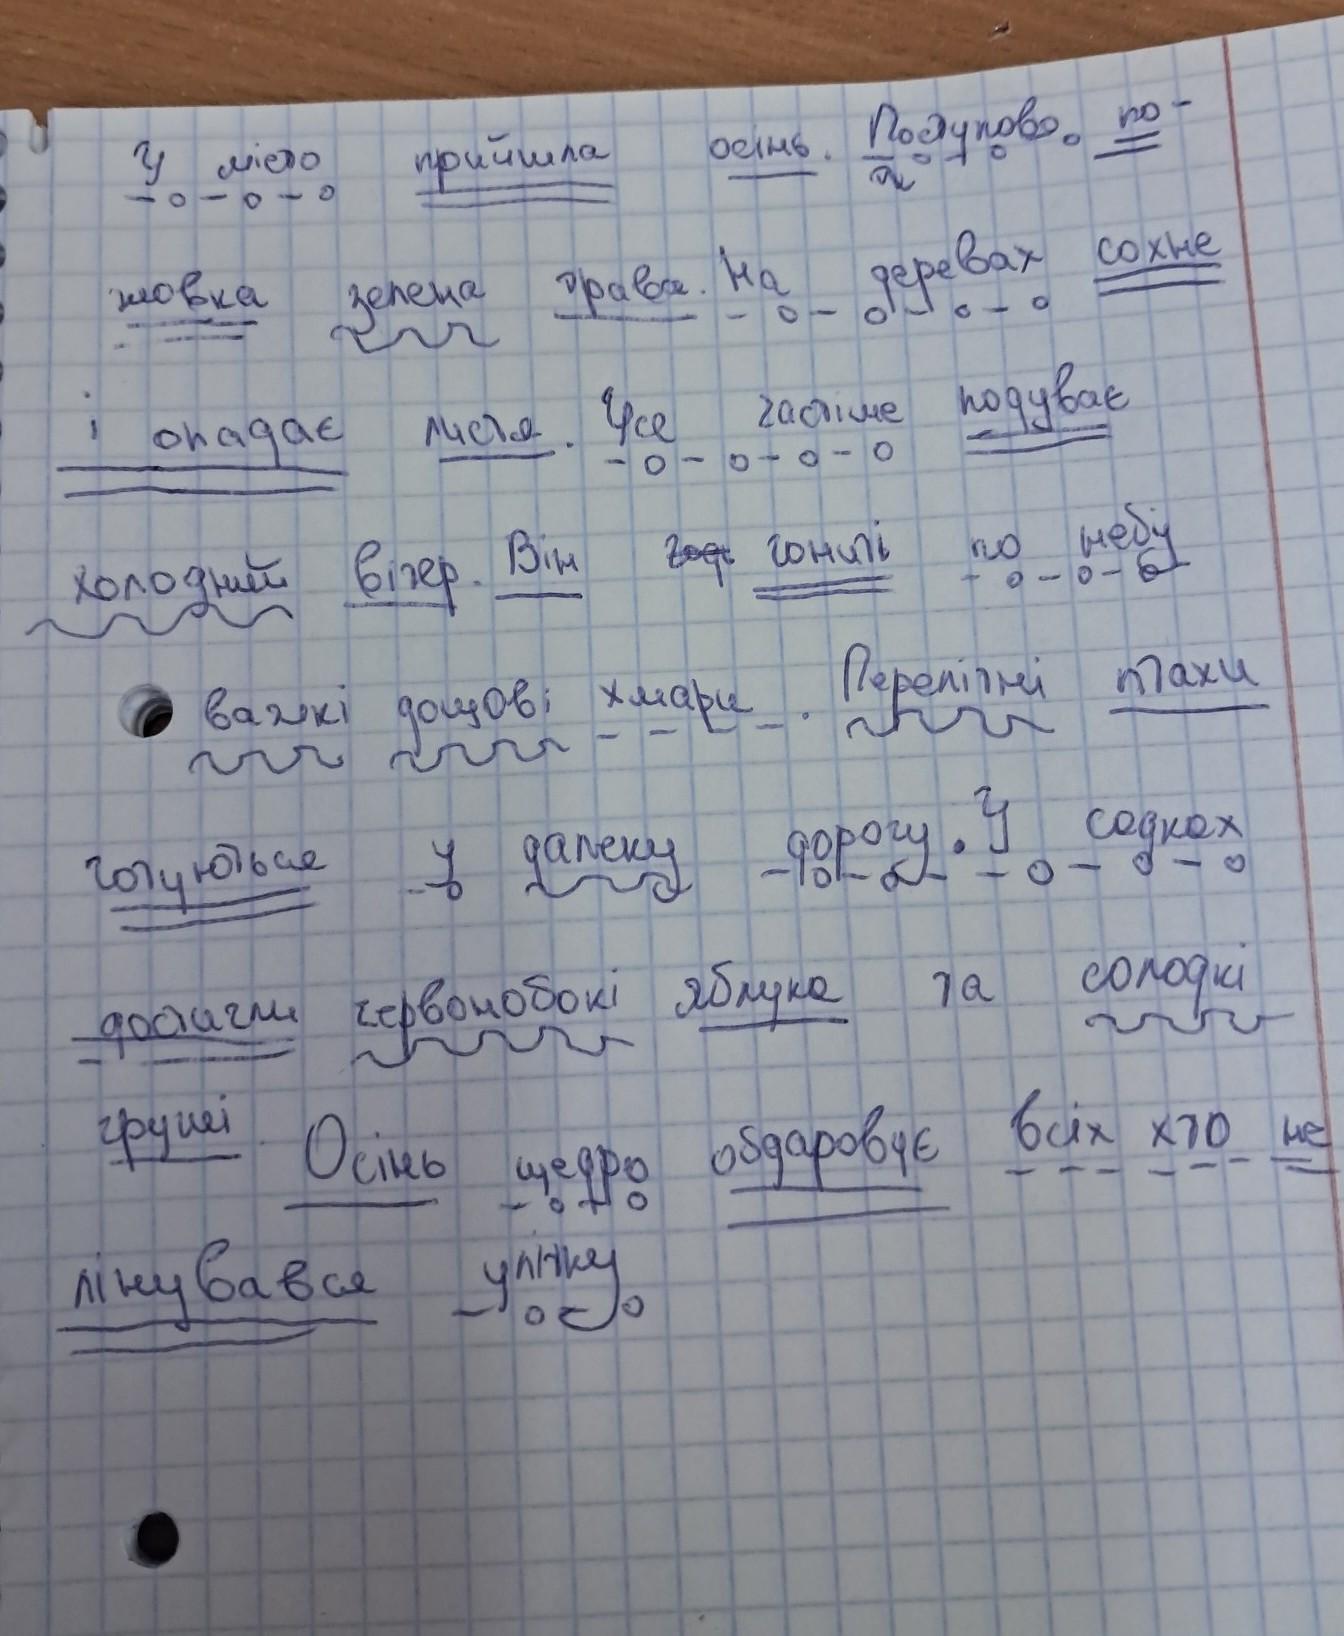 У місто прийшла осінь. Поступово по-
жовкла зелена трава. На деревах сохне
і опадає листя. Усе частіше подуває
холодний вітер. Він гонить по небу
важкі дощові хмари. Перелітні птахи
готуються у далеку дорогу. У садках
достигли червонобокі яблука та солодкі
груші. Осінь щедро обдаровує всіх хто не
лінувався улітку